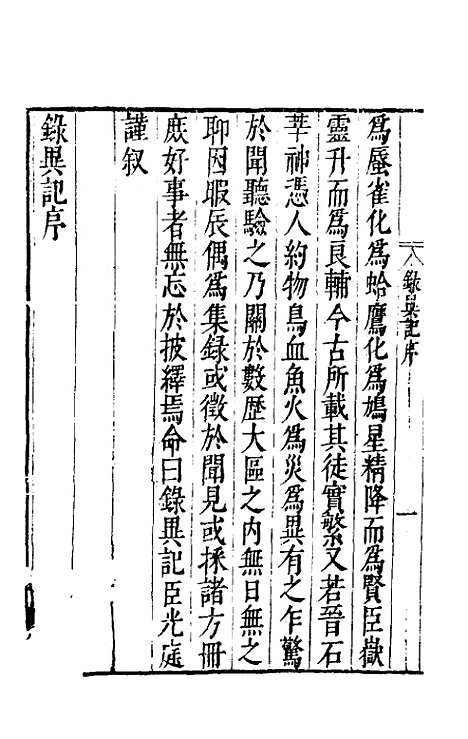 錄異記序
一
為蜃雀化為蛤鷹化為鳩星精降而為賢臣嶽
靈升而為良輔今古所載其徒實繁又若晉石
莘神憑人約物鳥血魚火為災為異有之乍驚
於聞聽驗之乃關於數歷大區之內無日無之
聊因暇辰偶為集録或徵於聞見或採諸方冊
庻好事者無忘於披繹焉命曰錄異記臣光庭
謹叙
錄異記序